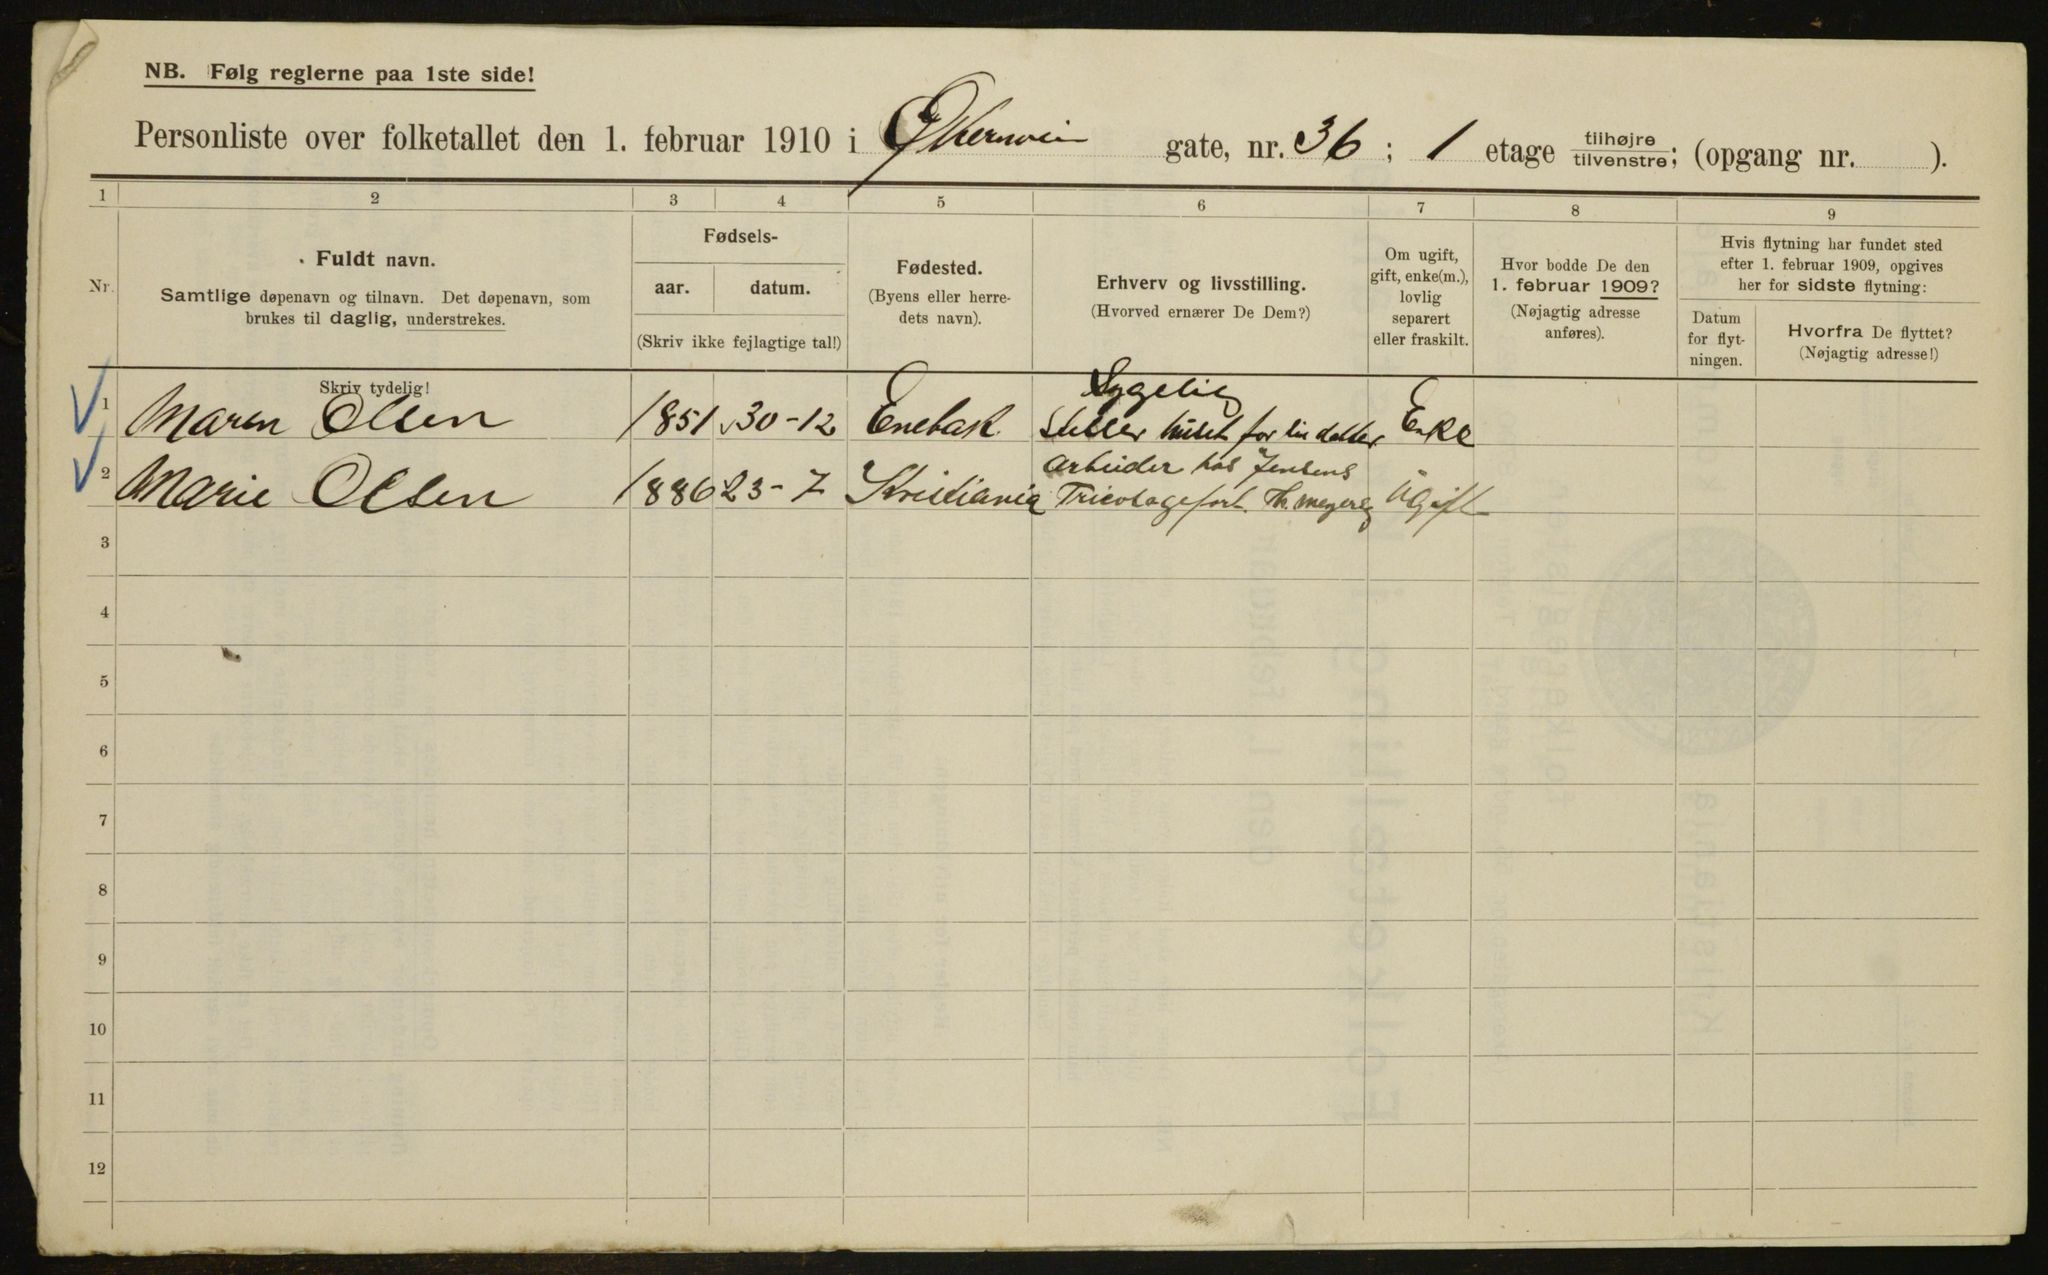 NB. Følg reglerne paa 1ste side!
Personliste over folketallet den 1. februar 1910 i Økernvei gate, nr. 36 ; 1 etage tilhøjre tilvenstre; (opgang nr. ).
1 2 3 4 5 6 7 8 9
Nr.
Fuldt navn.
Samtlige døpenavn og tilnavn. Det døpenavn, som
brukes til daglig, understrekes.
Skriv tydelig!
Fødsels-
aar. datum.
(Skriv ikke fejlagtige tal!)
Fødested.
(Byens eller herre-
dets navn).
Erhverv og livsstilling.
(Hvorved ernærer De Dem?)
Om ugift,
gift, enke(m.),
lovlig
separert
eller fraskilt.
Hvor bodde De den
1. februar 1909?
(Nøjagtig adresse
anføres).
Hvis flytning har fundet sted
efter 1. februar 1909, opgives
her for sidste flytning:
Datum
for flyt-
ningen.
Hvorfra De flyttet?
(Nøjagtig adresse!)
Sygelig
1 Maren Olsen 1851 30-12 Enebak Steller huset for sin datter Enke
Arbeider hos Jensens
2 Marie Olsen 1886 23-7 Kristiania Tricotagefort. Th. Meyersg Ugift
3
4
5
6
7
8
9
10
11
12